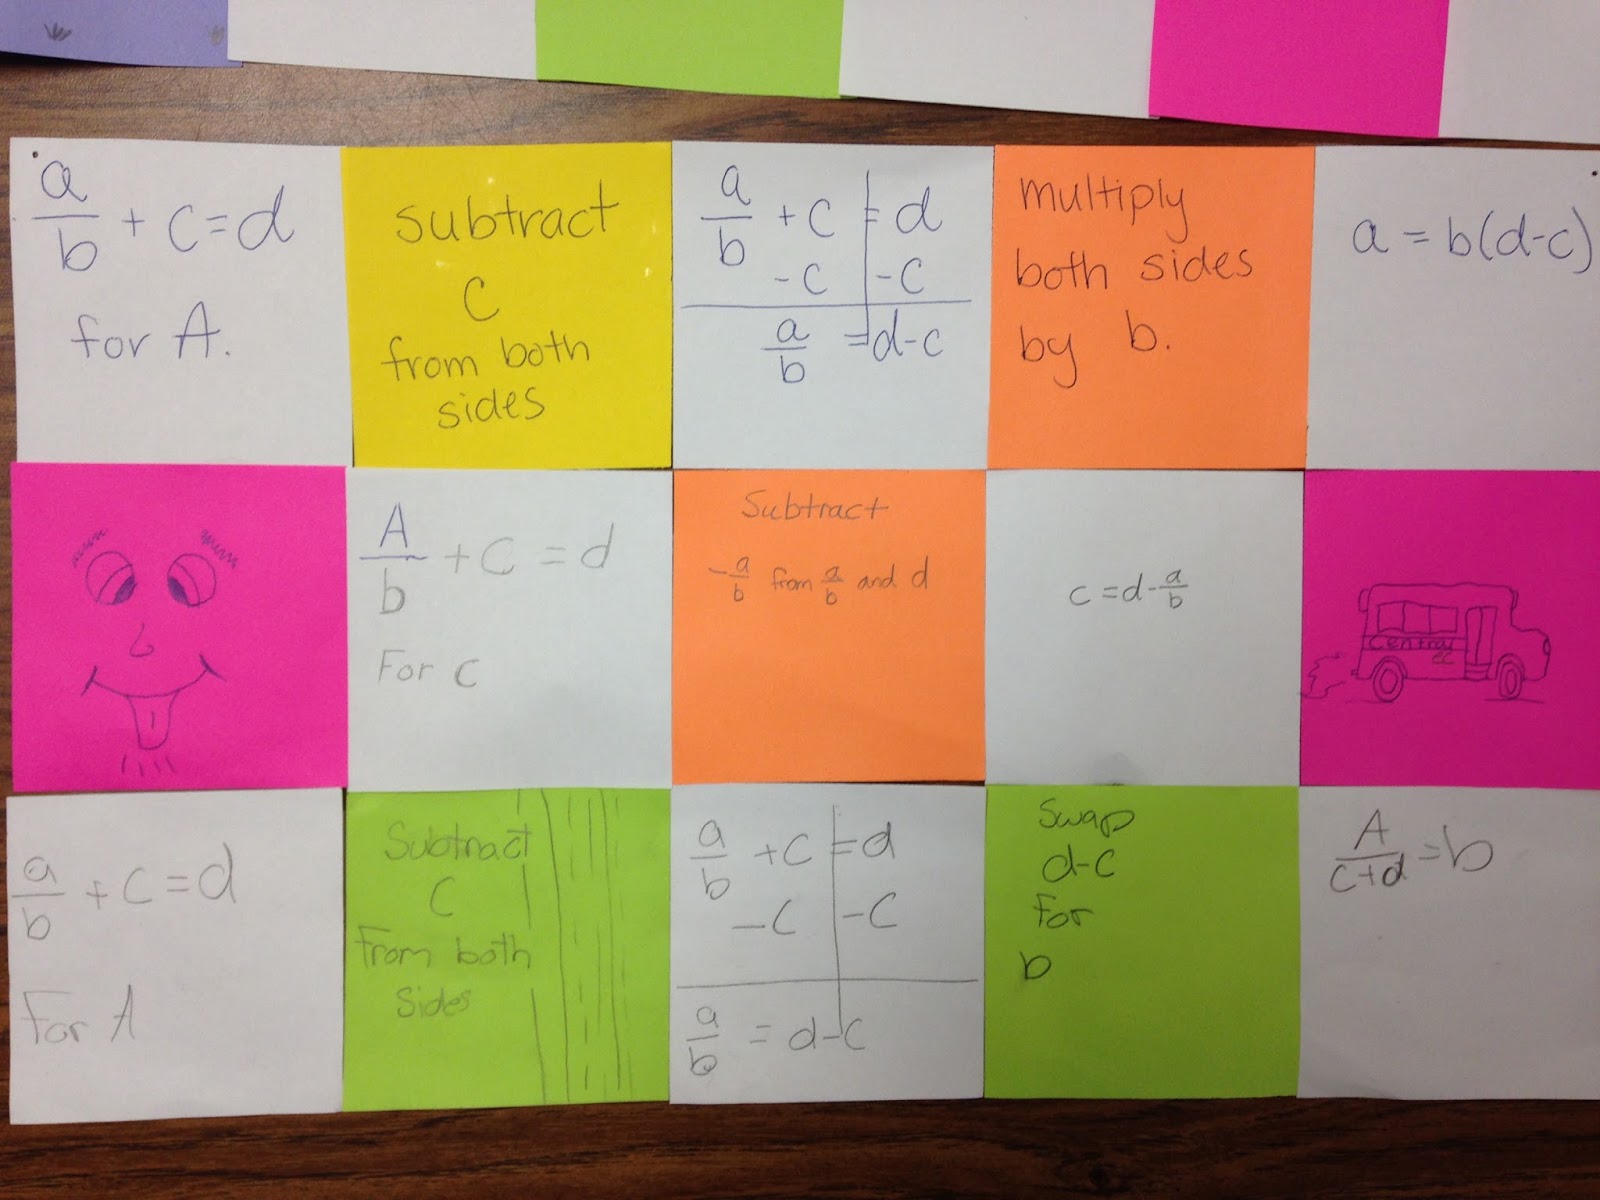 a/b + c = d
for A.
subtract
C
from both
sides
a/b + c = d
-c -c
a/b = d-c
multiply
both sides
by b.
a = b(d-c)
A/b + c = d
For c
Subtract
-a/b from a/b and d
c = d - a/b
Central
a/b + c = d
For A
Subtract
C
From both
Sides
a/b + c = d
-c -c
a/b = d-c
Swap
d-c
For
b
A/c+d = b